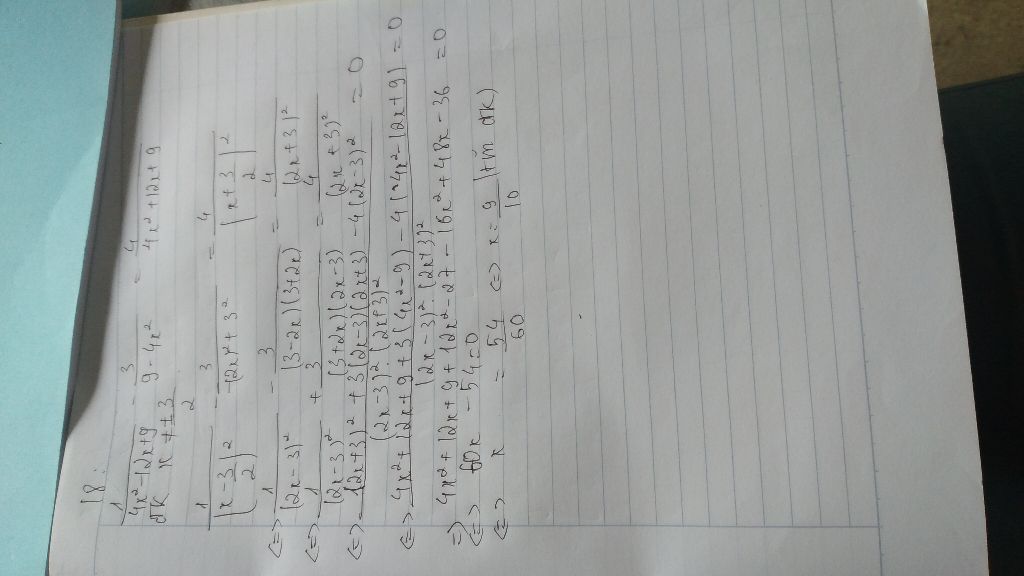 18:
1/(4x²-12x+9) - 3/(9-4x²) = 4/(4x²+12x+9)
ĐK x ≠ ± 3/2
1/(x-3/2)² - 3/(-(2x)²+3²) = 4/(x+3/2)²
<=> 1/(2x-3)² - 3/((3-2x)(3+2x)) = 4/(2x+3)²
<=> 1/(2x-3)² + 3/((3+2x)(2x-3)) = 4/(2x+3)²
<=> ((2x+3)² + 3(2x-3)(2x+3) - 4(2x-3)²)/((2x-3)².(2x+3)²) = 0
<=> (4x²+12x+9+3(4x²-9)-4(4x²-12x+9))/((2x-3)².(2x+3)²) = 0
=> 4x²+12x+9+12x²-27-16x²+48x-36 = 0
<=> 60x - 54=0
<=> x = 54/60 <=> x = 9/10 (tm đk)